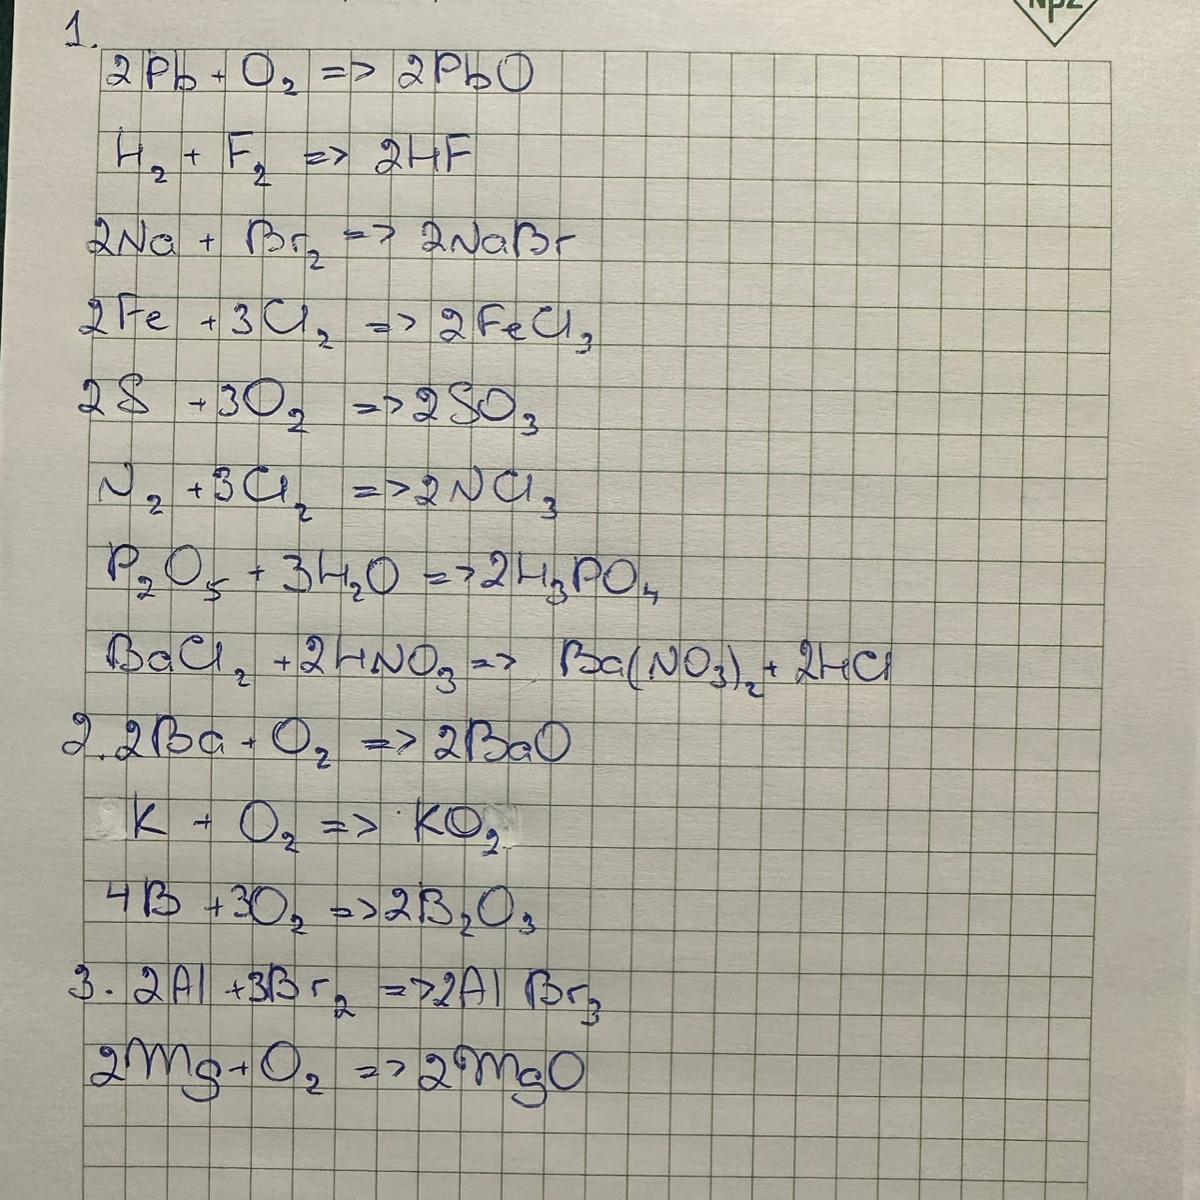 NpZ
1.
2Pb + O₂ => 2PbO
H₂ + F₂ => 2HF
2Na + Br₂ => 2NaBr
2Fe + 3Cl₂ => 2FeCl₃
2S + 3O₂ => 2SO₃
N₂ + 3Cl₂ => 2NCl₃
P₂O₅ + 3H₂O => 2H₃PO₄
BaCl₂ + 2HNO₃ => Ba(NO₃)₂ + 2HCl
2. 2Ba + O₂ => 2BaO
K + O₂ => KO₂
4B + 3O₂ => 2B₂O₃
3. 2Al + 3Br₂ => 2AlBr₃
2Mg + O₂ => 2MgO